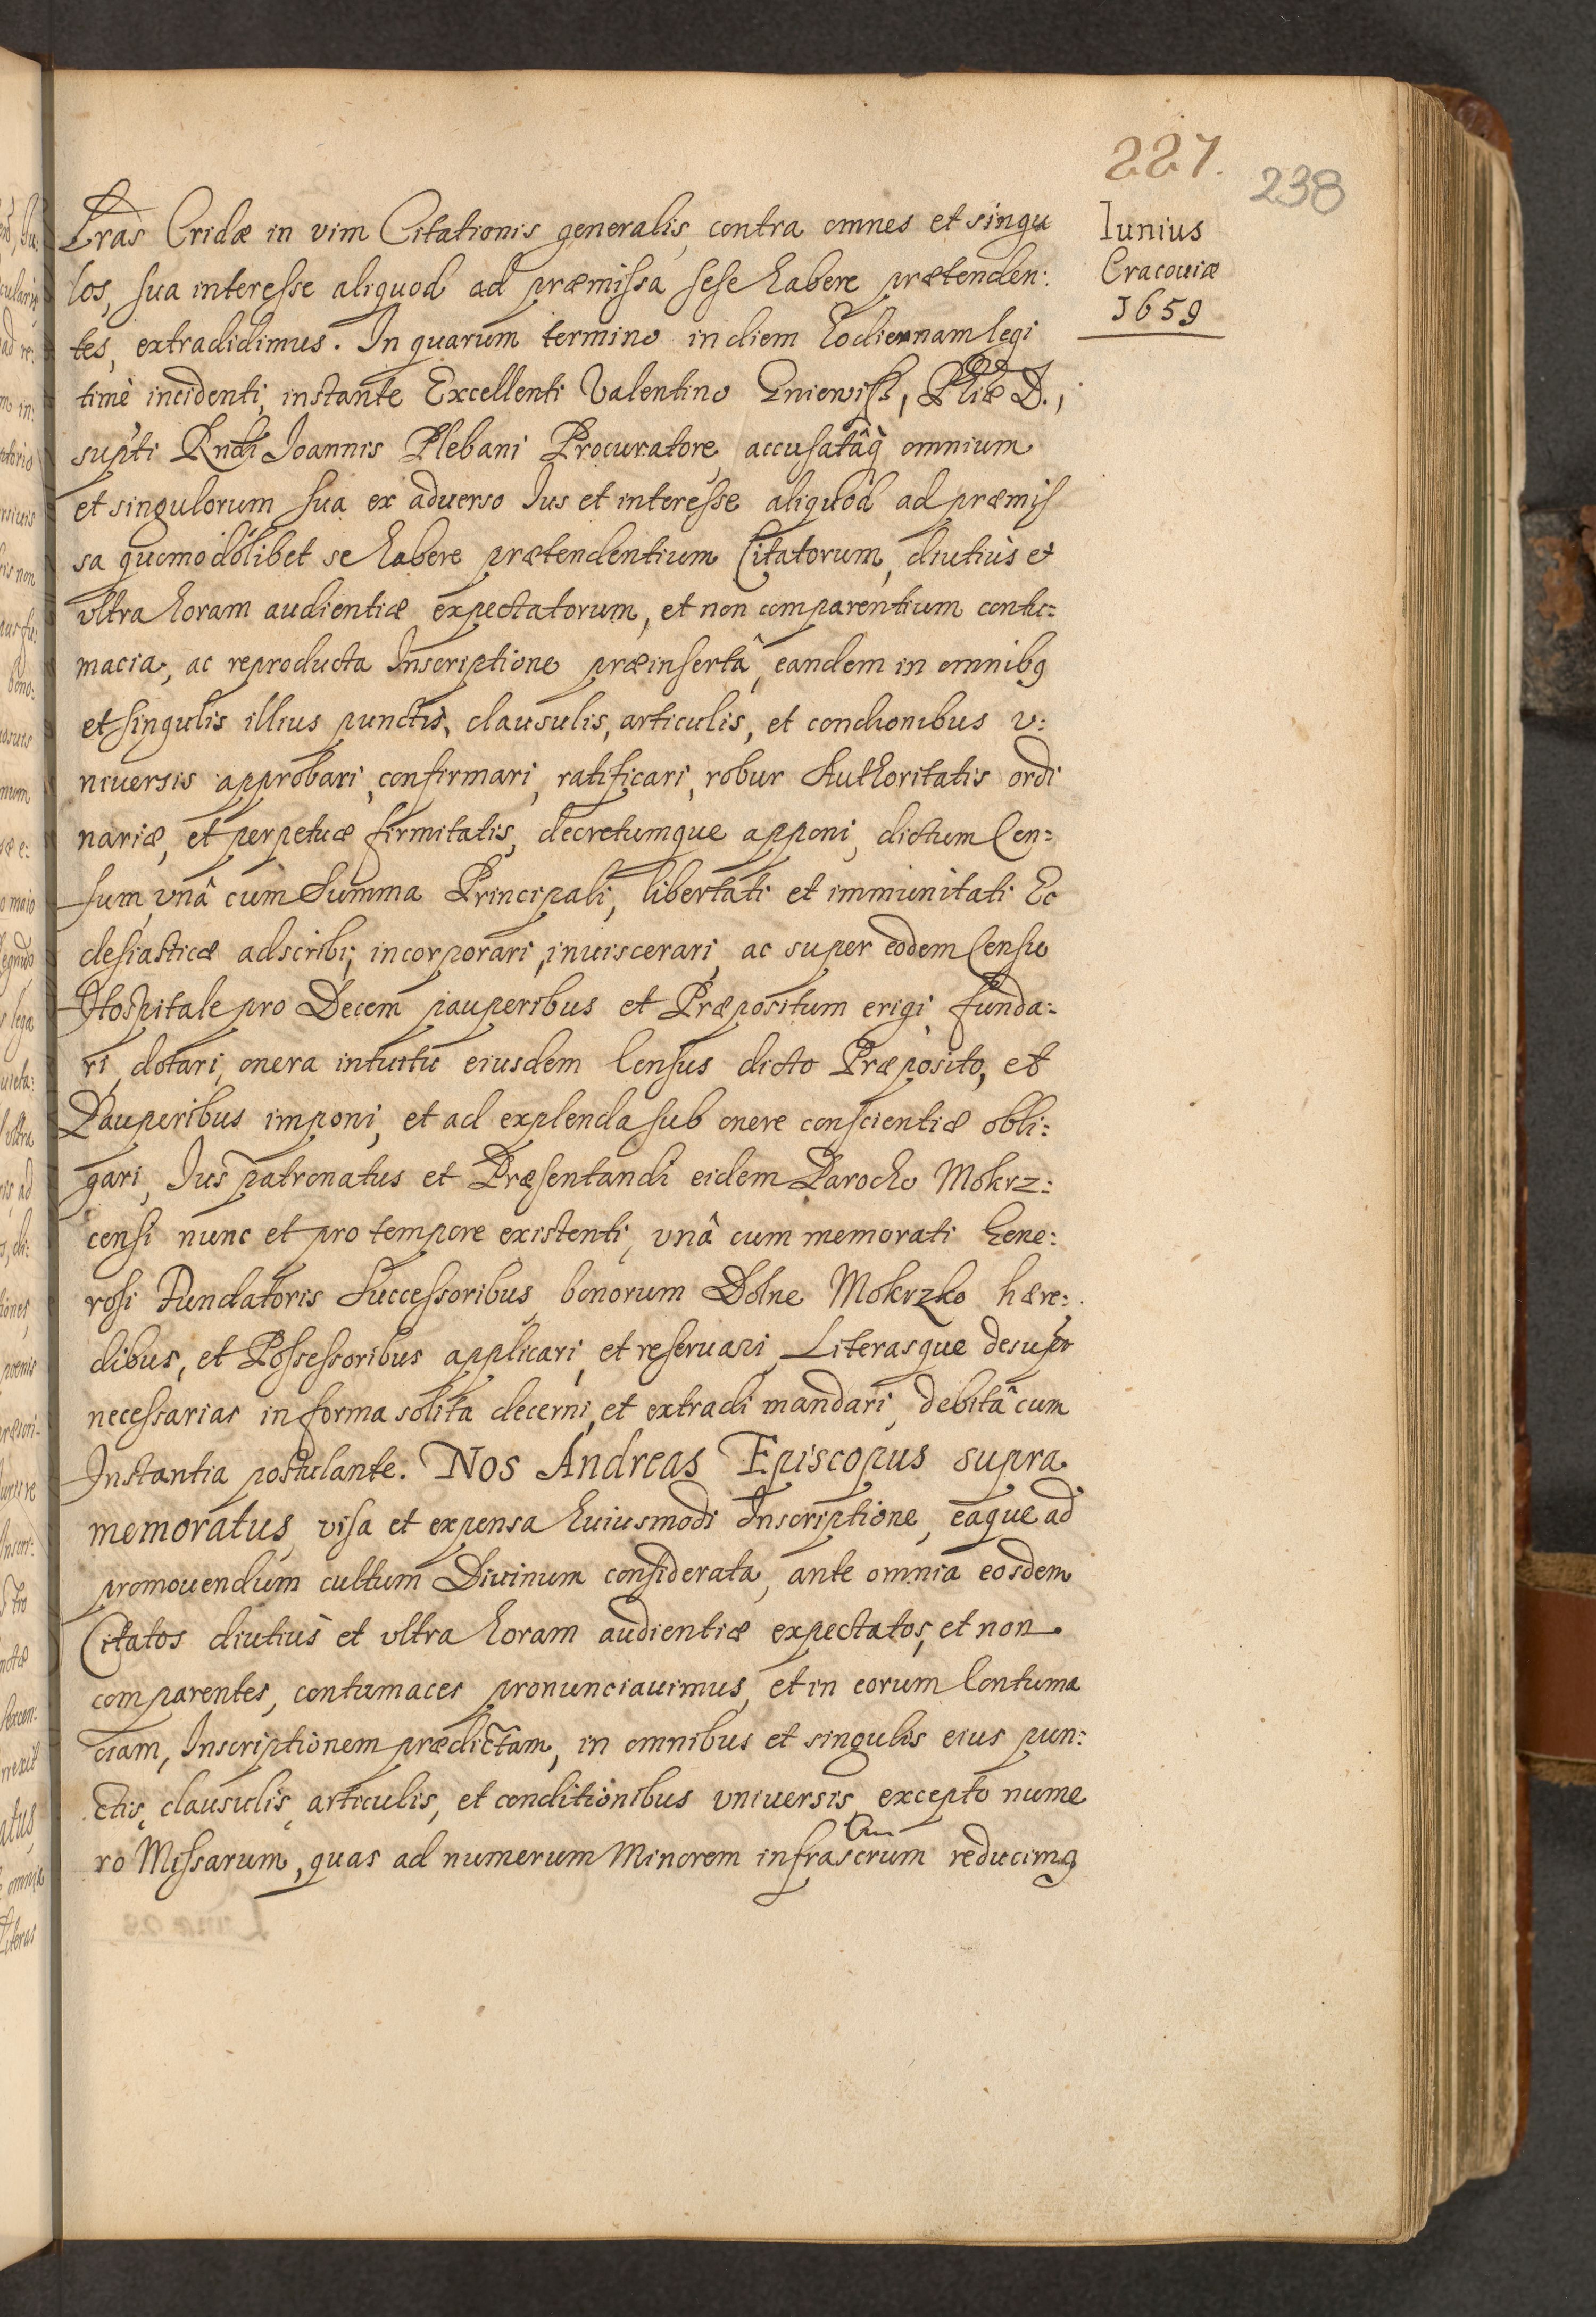 227.
238
Iunius
Cracouiæ
1659
Lras Cridæ in vim Citationis generalis, contra omnes et singu
los, sua interesse aliquod ad præmissa sese habere prætenden:
tes, extradidimus. In quarum termino in diem hodiernam legi
timè incidenti, instante Excellenti Valentino Gniewisz, Phiæ D.,
supti Rndi Joannis Plebani Procuratore, accusatâq̀ omnium
et singulorum sua ex aduerso Ius et interesse aliquod ad præmis
sa quomodolibet se habere prætendentium Citatorum, diutiùs et
vltra horam audientiæ expectatorum, et non comparentium contu:
macia, ac reproducta Inscriptione præinsertâ, eandem in omnibq
et singulis illius punctis, clausulis, articulis, et condionibus v:
niuersis approbari, confirmari, ratificari, robur Authoritatis ordi
nariæ, et perpetuæ firmitatis, decretumque apponi, dictum Cen:
sum, vnâ cum Summa Principali, libertati et immunitati Ec
clesiasticæ adscribi, incorporari, inuiscerari, ac super eodem Censu
Hospitale pro Decem pauperibus et Præpositum erigi, funda:
ri, dotari, onera intuitu eiusdem Census dicto Præposito, et
Pauperibus imponi, et ad explenda sub onere conscientiæ obli:
gari, Ius patronatus et Præsentandi eidem Parocho Mokrz:
censi nunc et pro tempore existenti, vnâ cum memorati Gene:
rosi Fundatoris Successoribus, bonorum Dolne Mokrzko hære:
dibus, et Possessoribus applicari, et reseruari, Literasque desuper
necessarias in forma solita decerni, et extradi mandari, debitâ cum
Instantia postulante. Nos Andreas Episcopus supra
memoratus, visa et expensa huiusmodi Inscriptione, eaque ad
promouendum cultum Diuinum considerata, ante omnia eosdem
Citatos diutiùs et vltra horam audientiæ expectatos, et non
comparentes, contumaces pronunciauimus, et in eorum Contuma
ciam, Inscriptionem prædictam, in omnibus et singulis eius pun:
ctis, clausulis, articulis, et conditionibus vniuersis, excepto nume
ro Missarum, quas ad numerum Minorem infrascrum reducimq